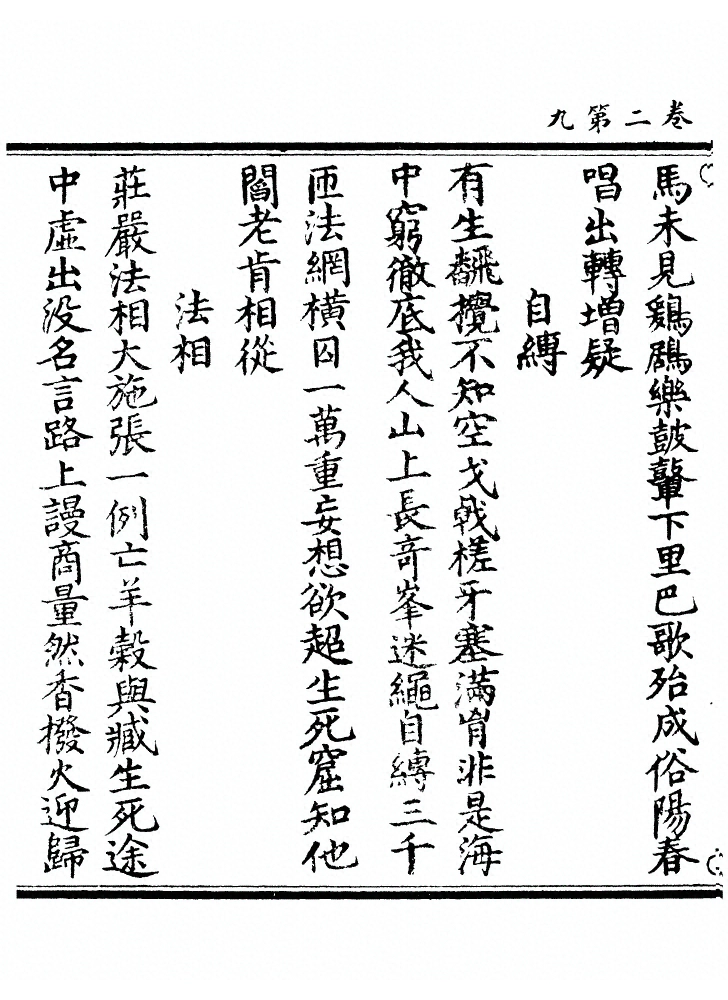 卷二第九
馬未見鶢鶋樂鼓鼙下里巴歌殆成俗陽春
唱出轉增疑
自縛
有生飜攪不知空戈戟槎牙塞滿胷非是海
中窮徹底我人山上長竒峯迷繩自縛三千
匝法網橫囚一萬重妄想欲超生死窟知他
閻老肯相從
法相
莊嚴法相大施張一例亡羊穀與臧生死途
中虛出没名言路上謾商量然香撥火迎歸